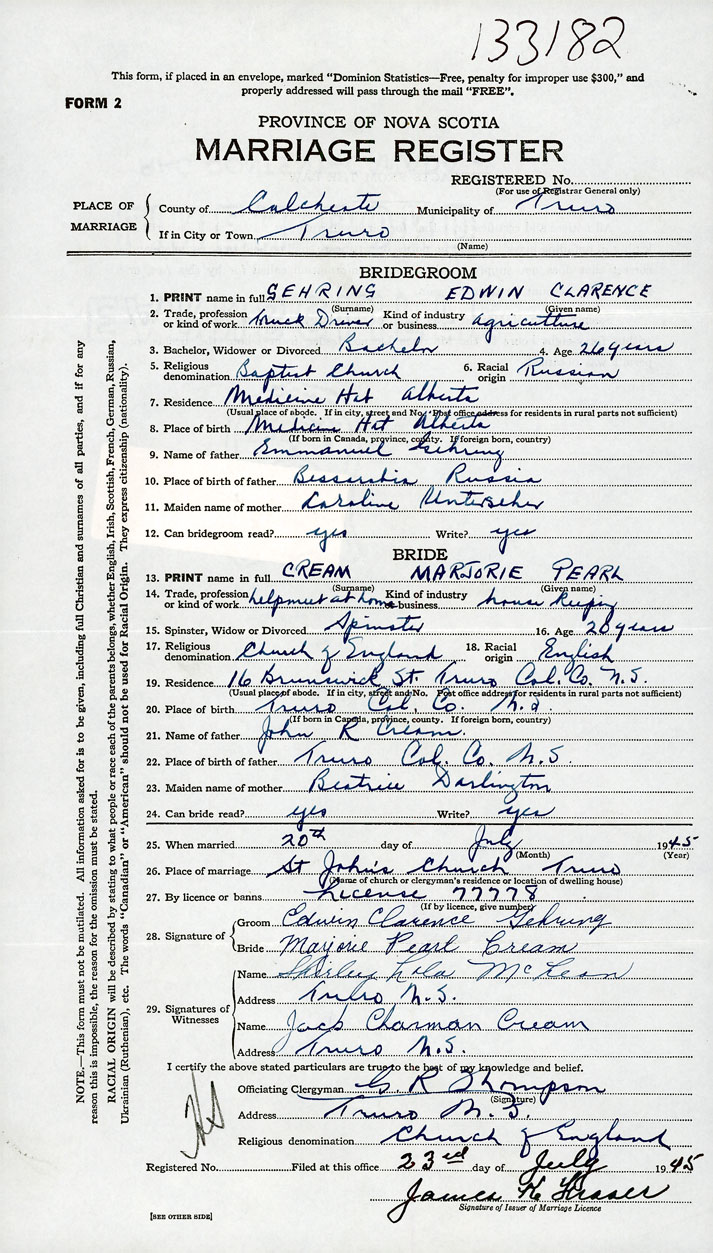 133182
This form, if placed in an envelope, marked "Dominion Statistics—Free, penalty for improper use $300," and
properly addressed will pass through the mail "FREE".
FORM 2
PROVINCE OF NOVA SCOTIA
MARRIAGE REGISTER
REGISTERED No.
(For use of Registrar General only)
PLACE OF MARRIAGE
County of Colchester Municipality of Truro
If in City or Town Truro
(Name)
BRIDEGROOM
1. PRINT name in full GEHRING EDWIN CLARENCE
(Surname) (Given name)
2. Trade, profession or kind of work Truck Driver Kind of industry or business agriculture
3. Bachelor, Widower or Divorced Bachelor 4. Age 26 years
5. Religious denomination Baptist Church 6. Racial origin Russian
7. Residence Medicine Hat Alberta
(Usual place of abode. If in city, street and No. Post office address for residents in rural parts not sufficient)
8. Place of birth Medicine Hat Alberta
(If born in Canada, province, county. If foreign born, country)
9. Name of father Emmanuel Gehring
10. Place of birth of father Bessarabia Russia
11. Maiden name of mother Karoline Unterseher
12. Can bridegroom read? yes Write? yes
BRIDE
13. PRINT name in full CREAM MARJORIE PEARL
(Surname) (Given name)
14. Trade, profession or kind of work helpmeet at home Kind of industry or business house keeping
15. Spinster, Widow or Divorced Spinster 16. Age 20 years
17. Religious denomination Church of England 18. Racial origin English
19. Residence 16 Brunswick St. Truro Col. Co. N.S.
(Usual place of abode. If in city, street and No. Post office address for residents in rural parts not sufficient)
20. Place of birth Truro Col. Co. N.S.
(If born in Canada, province, county. If foreign born, country)
21. Name of father John R Cream.
22. Place of birth of father Truro Col. Co. N.S.
23. Maiden name of mother Beatrice Darlington
24. Can bride read? yes Write? yes
25. When married 20th day of July 1945
(Month) (Year)
26. Place of marriage St John's Church Truro
(Name of church or clergyman's residence or location of dwelling house)
27. By licence or banns License 77778
(If by licence, give number)
28. Signature of
Groom Edwin Clarence Gehring
Bride Marjorie Pearl Cream
29. Signatures of Witnesses
Name Shirley Lola McLean
Address Truro N.S.
Name Jack Charman Cream
Address Truro N.S.
I certify the above stated particulars are true to the best of my knowledge and belief.
Officiating Clergyman G. R Thompson
(Signature)
Address Truro N.S.
Religious denomination Church of England
Registered No. Filed at this office 23rd day of July 1945
James K Fraser
Signature of Issuer of Marriage Licence
[SEE OTHER SIDE]
NOTE.—This form must not be mutilated. All information asked for is to be given, including full Christian and surnames of all parties, and if for any
reason this is impossible, the reason for the omission must be stated.
RACIAL ORIGIN will be described by stating to what people or race each of the parents belongs, whether English, Irish, Scottish, French, German, Russian,
Ukrainian (Ruthenian), etc. The words "Canadian" or "American" should not be used for Racial Origin. They express citizenship (nationality).